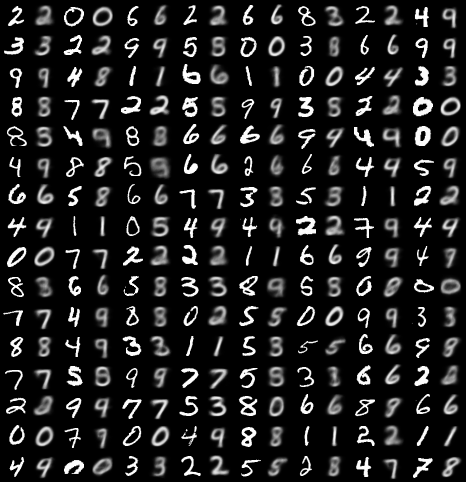 2 2 0 0 6 6 2 2 6 6 8 3 2 2 4 9
3 3 2 2 9 9 5 8 0 0 3 8 6 6 9 9
9 9 4 8 1 1 6 6 1 1 0 0 4 4 3 3
8 8 7 7 2 2 5 5 9 9 3 8 2 2 0 0
8 3 4 9 8 8 6 6 6 6 9 9 4 9 0 0
4 9 8 8 5 9 6 6 2 6 6 6 4 4 5 9
6 6 5 8 6 6 7 7 3 8 5 3 1 1 2 2
4 9 1 1 0 5 4 9 4 9 2 2 7 9 4 4
0 0 7 7 2 2 2 2 1 1 6 6 9 9 4 9
8 3 6 6 5 8 3 3 8 9 5 8 0 8 0 0
7 7 4 9 8 8 0 2 5 5 0 0 9 9 3 3
8 8 4 9 3 3 1 1 5 3 5 5 6 6 9 8
7 7 5 8 9 9 7 7 5 8 3 3 6 6 2 2
2 2 9 9 7 7 5 3 8 0 6 6 8 8 6 6
0 0 7 9 0 0 4 9 8 8 1 1 2 2 1 1
4 9 0 0 3 3 2 2 5 5 2 8 4 7 7 8